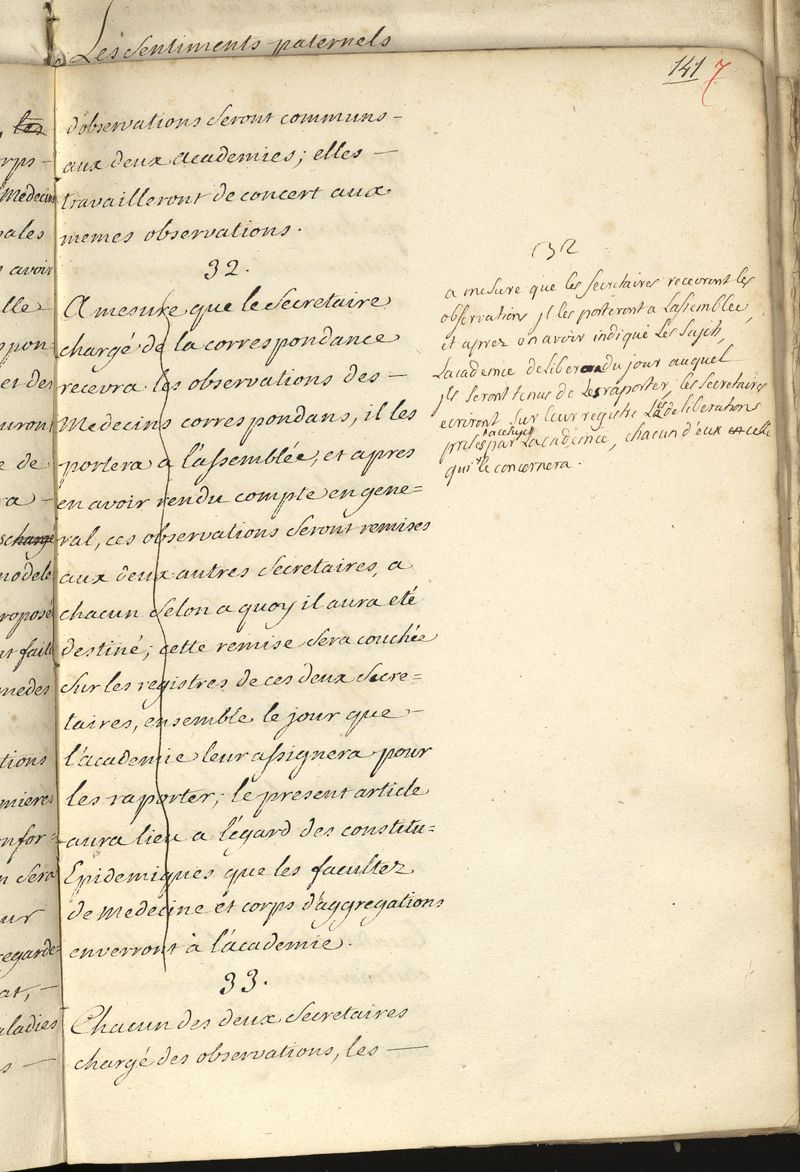 Les sentiments paternels
141 7
d'observations seront communs –
aux deux academies; elles –
travailleront de concert aux
memes observations.
32.
A mesure que le Secretaire
chargé de la correspondance
recevra les observations des –
Medecins correspondans, il les
portera a l'assemblée, et apres
en avoir rendu compte en gene=
ral, ces observations seront remises
aux deux autres Secretaires, a
chacun selon a quoy il aura eté
destiné; cette remise sera couchée
sur les registres de ces deux Secre=
taires, ensemble le jour que –
l'academie leur assignera pour
les raporter; le present article
aura lieu a l'égard des constitu=
Epidemiques que les facultez
de Medecine et corps d'aggregations
enverront à l'academie.
33.
Chacun des deux Secretaires
chargé des observations, les –
32
a mesure que les secretaires recevront les
observations jl les porteront a Lassemblee,
et aprez en avoir indiqué Les Sujets,
Lacademie deliberera du jour auquel
jls seront tenus de Les raporter, les secretaires
ecriront sur leur registre Les deliberations
prises par Lacademie, chacun d'eux celle
qui le concernera.
les
rps –
Medecins
pales
avoir
lle
spon
et des
uront
e de
ra –
chargé
modele
roposé
nt faite
medes
tions
mieres
nfor=
n sera
ur
regarde=
at, –
aladies
s –